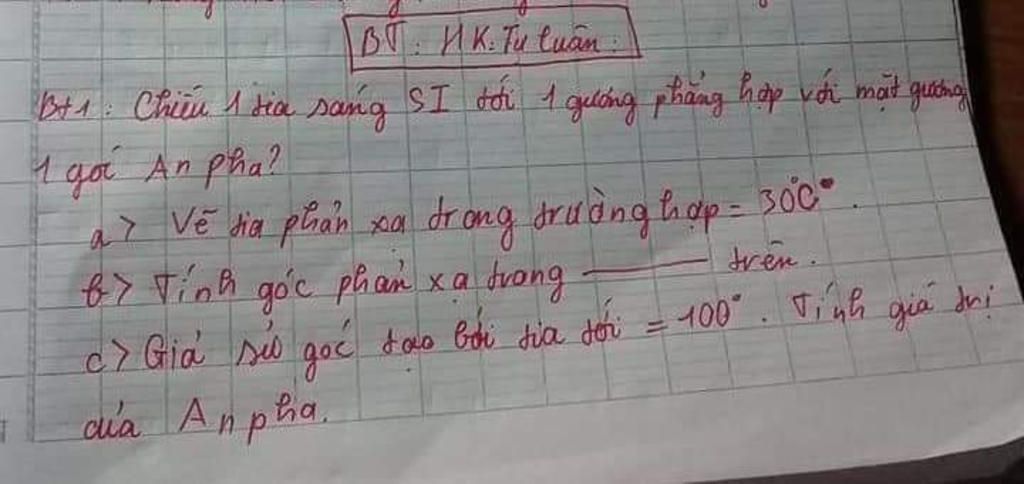 BT: HK: Tự luận:
Bt1: Chiếu 1 tia sáng SI tới 1 gương phẳng hợp với mặt gương
1 góc An pha?
a> Vẽ tia phản xạ trong trường hợp = 30°C°.
b> Tính góc phản xạ trong ——— trên.
c> Giả sử góc tạo bởi tia tới = 100°. Tính giá trị
của An pha.